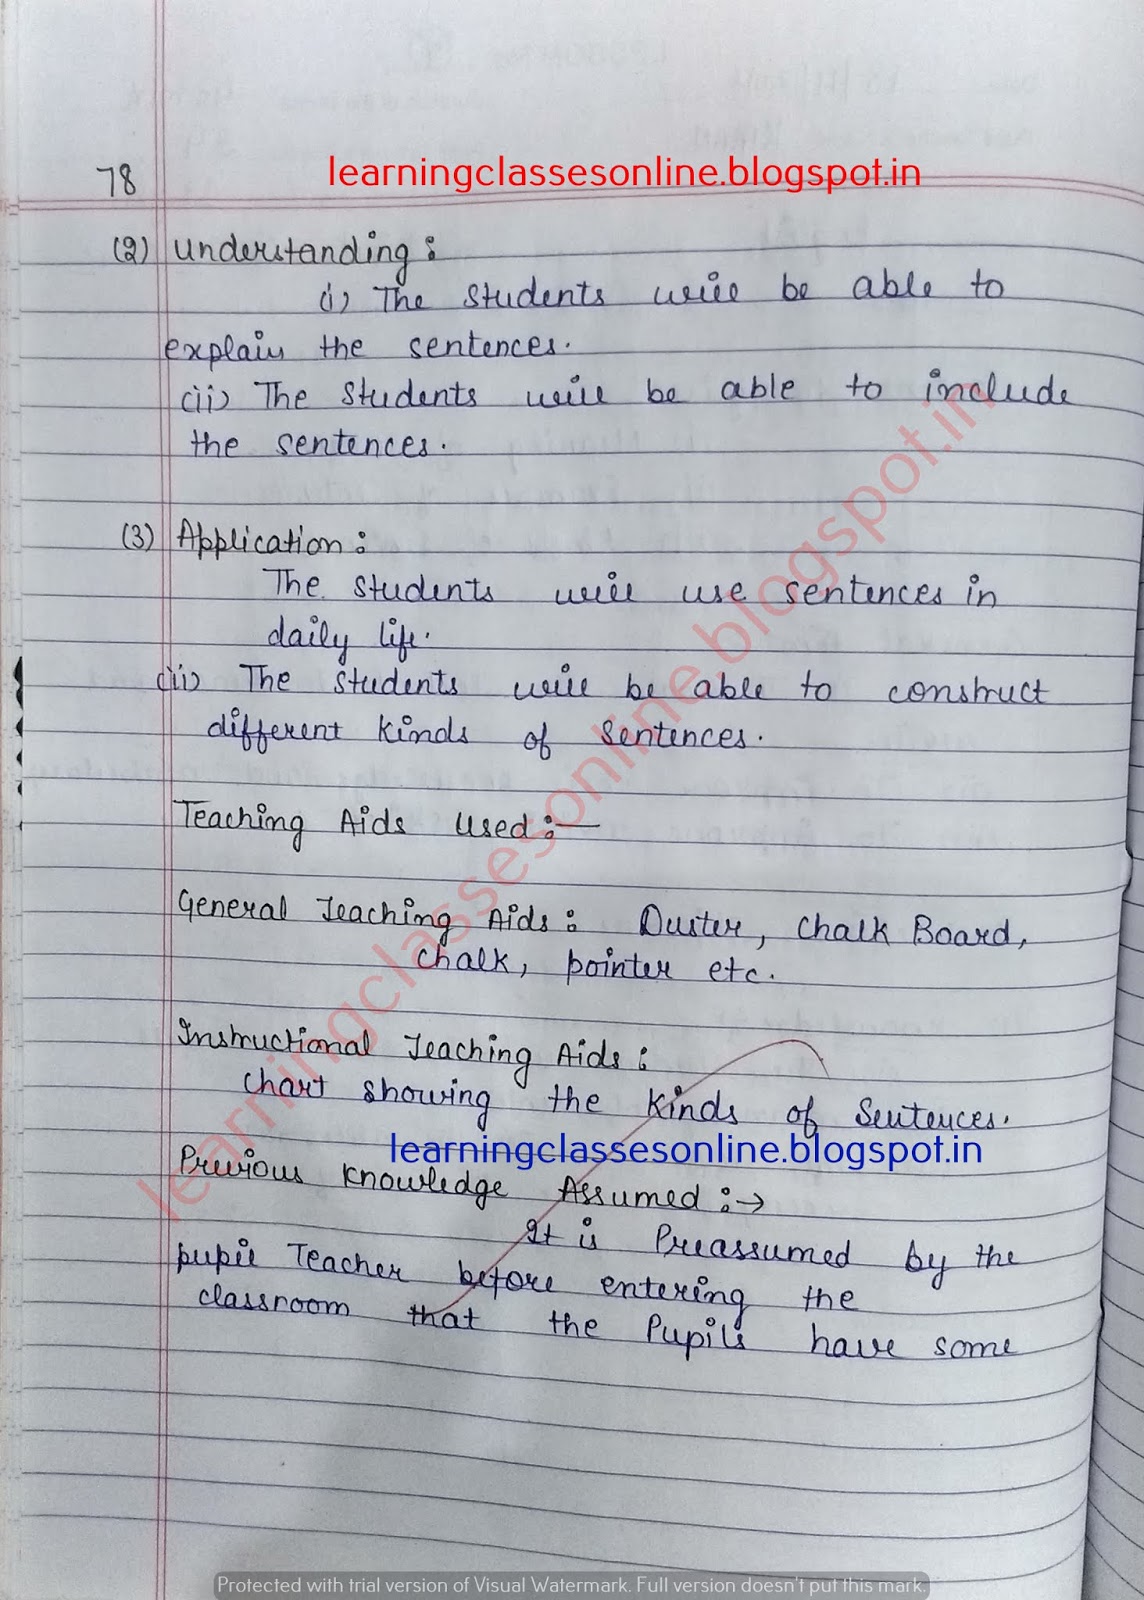 78
learningclassesonline.blogspot.in
(2) Understanding :
(i) The students will be able to
explain the sentences.
(ii) The students will be able to include
the sentences.
(3) Application :
The students will use sentences in
daily life.
(ii) The students will be able to construct
different kinds of sentences.
Teaching Aids Used :—
General Teaching Aids : Duster, chalk Board,
chalk, pointer etc.
Instructional Teaching Aids :
chart showing the kinds of sentences.
learningclassesonline.blogspot.in
Previous knowledge Assumed :→
It is Preassumed by the
pupil Teacher before entering the
classroom that the Pupils have some
learningclassesonline.blogspot.in
Protected with trial version of Visual Watermark. Full version doesn't put this mark.